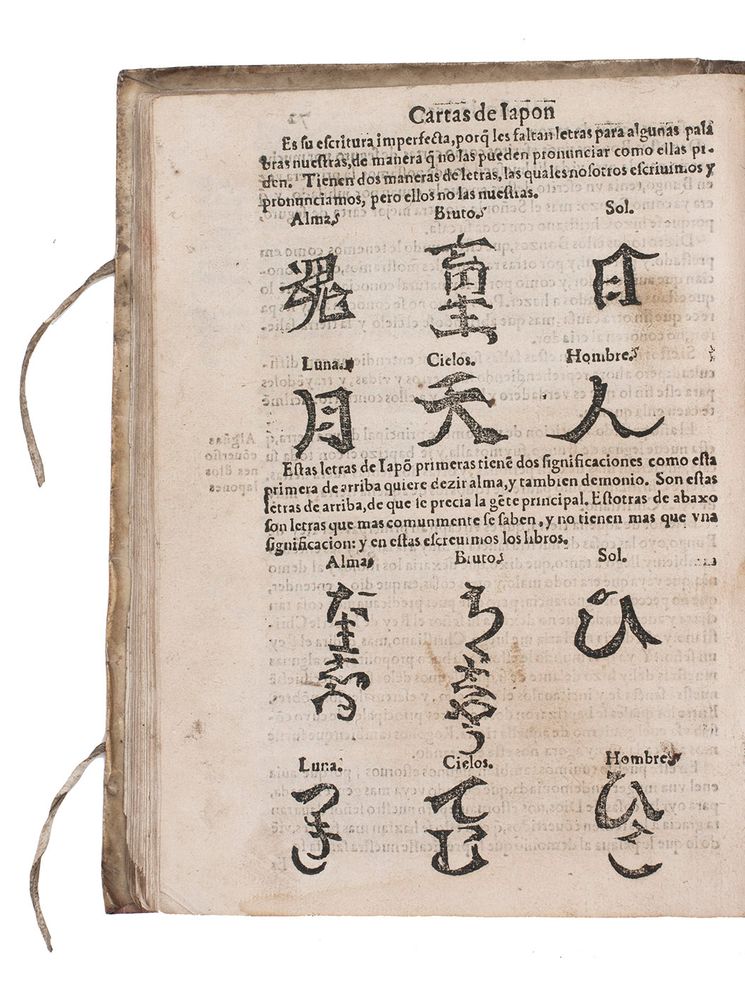 Cartas de Iapon
Es su escritura imperfecta, porq̃ les faltan letras para algunas pala
bras nuestras, de manera q̃ no las pueden pronunciar como ellas pi-
den. Tienen dos maneras de letras, las quales nosotros escriuimos y
pronunciamos, pero ellos no las nuestras.
Alma. Bruto. Sol.
魂 畜生 日
Luna. Cielos. Hombre.
月 天 人
Estas letras de Iapõ primeras tienẽ dos significaciones como esta
primera de arriba quiere dezir alma, y tambien demonio. Son estas
letras de arriba, de que se precia la gẽte principal. Estotras de abaxo
son letras que mas comunmente se saben, y no tienen mas que vna
significacion: y en estas escreuimos los libros.
Alma. Bruto. Sol.
ひ
Luna. Cielos. Hombre.
つき てむ ひと